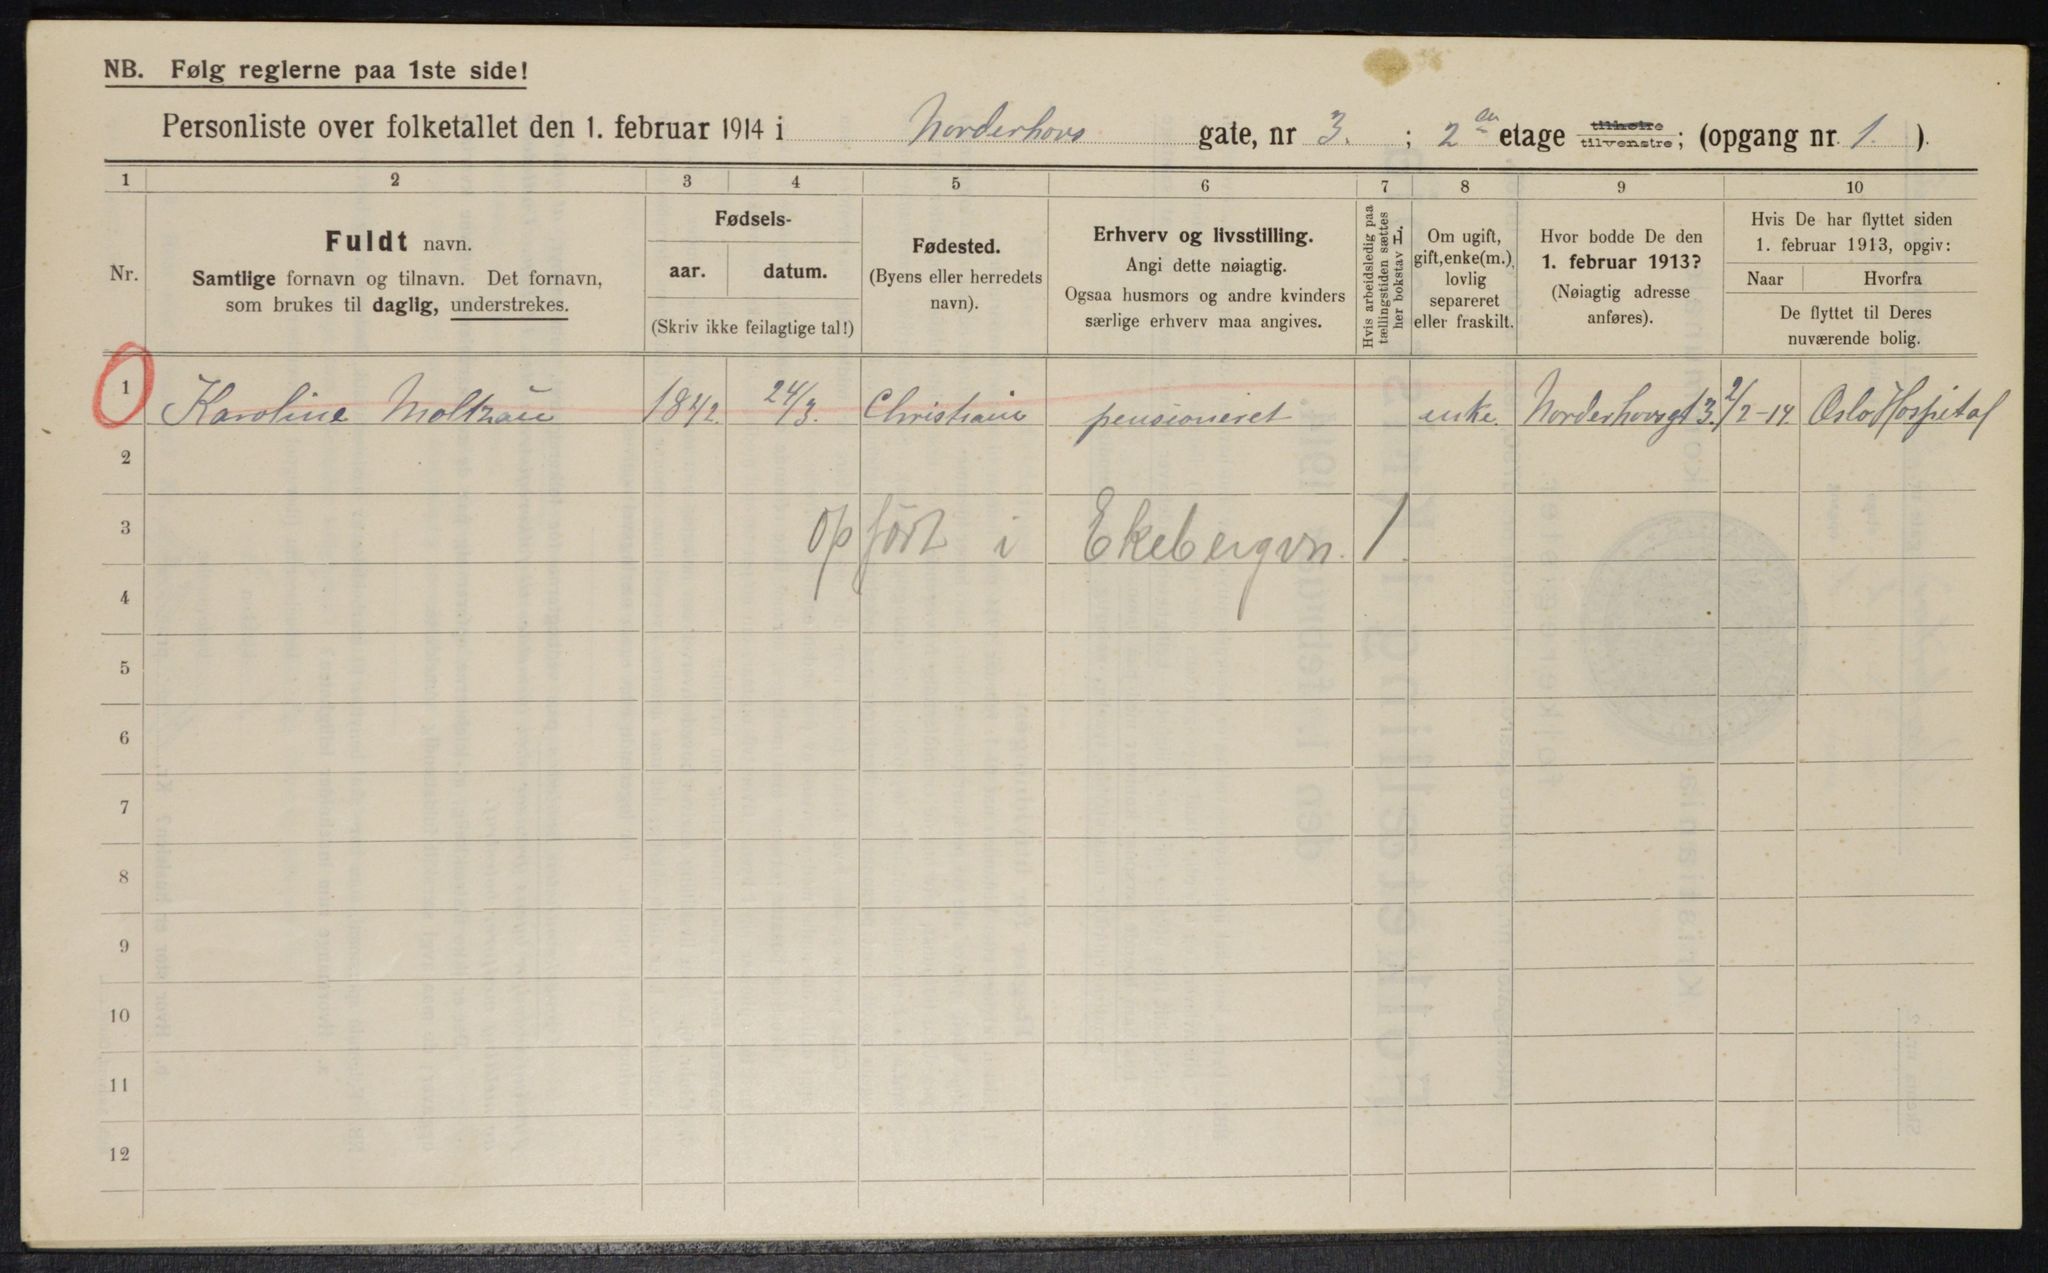 NB. Følg reglerne paa 1ste side!
Personliste over folketallet den 1. februar 1914 i Norderhovs gate, nr 3. ; 2den etage tilhøire tilvenstre; (opgang nr. 1. ).
1 2 3 4 5 6 7 8 9 10
Nr.
Fuldt navn.
Samtlige fornavn og tilnavn. Det fornavn,
som brukes til daglig, understrekes.
Fødsels-
aar. datum.
(Skriv ikke feilagtige tal!)
Fødested.
(Byens eller herredets
navn).
Erhverv og livsstilling.
Angi dette nøiagtig.
Ogsaa husmors og andre kvinders
særlige erhverv maa angives.
Hvis arbeidsledig paa
tællingstiden sættes
her bokstav L.
Om ugift,
gift, enke(m.),
lovlig
separeret
eller fraskilt.
Hvor bodde De den
1. februar 1913?
(Nøiagtig adresse
anføres).
Hvis De har flyttet siden
1. februar 1913, opgiv:
Naar Hvorfra
De flyttet til Deres
nuværende bolig.
1 Karoline Moltzau 1842. 24/3. Christiania pensioneret enke. Norderhovsgt 3. 2/2-14. Oslo Hospital
2
3 opført i Ekebergvn. 1
4
5
6
7
8
9
10
11
12